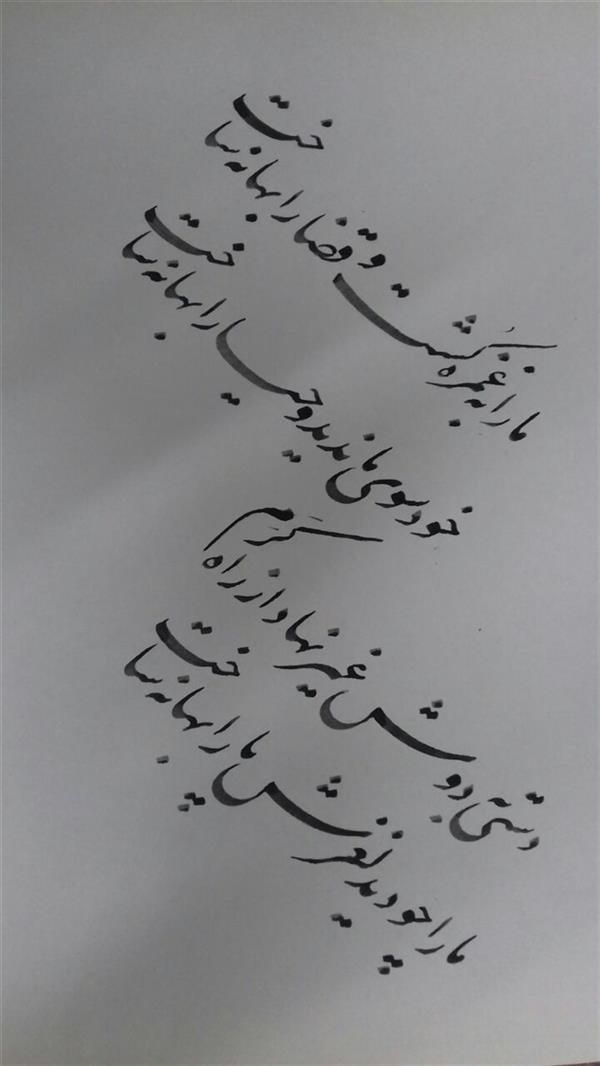 ما را به غمزه کشت و قضا را بهانه ساخت
خود سوی ما ندید و حیا را بهانه ساخت
دستی به دوش غیر نهاد از راه کرم
ما را چو دید لغزش پا را بهانه ساخت